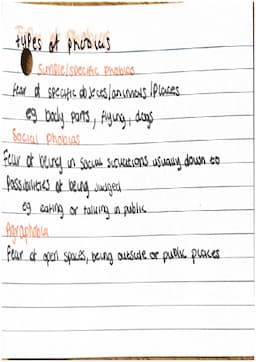 types of phobias
Simple/specific phobias
fear of specific objects/animals/places
eg body parts, flying, dogs
Social Phobias
Fear of being in social situations usually down to
possibilities of being judged
eg eating or talking in public
Agoraphobia
Fear of open spaces, being outside or public places